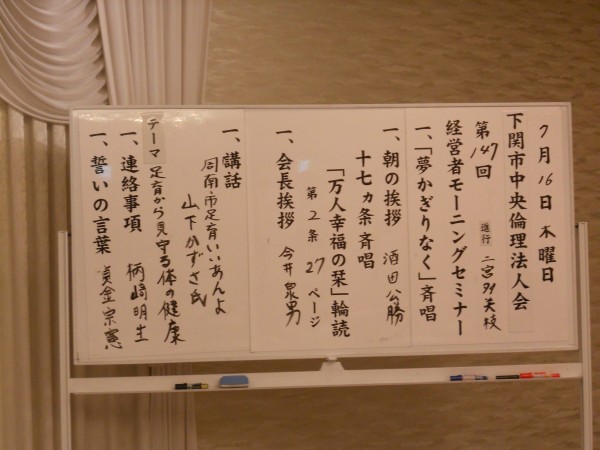 7月16日 木曜日
下関市中央倫理法人会
第147回 進行 二宮
経営者モーニングセミナー
一、「夢かぎりなく」斉唱
一、朝の挨拶 酒田公勝
十七ヵ条斉唱
「万人幸福の栞」輪読
第2条 27ページ
一、会長挨拶 今井 男
一、講話
周南市足育いいあんよ
山下かずさ氏
テーマ 足育から見守る体の健康
一、連絡事項 柄崎明生
一、誓いの言葉 貞金宗憲